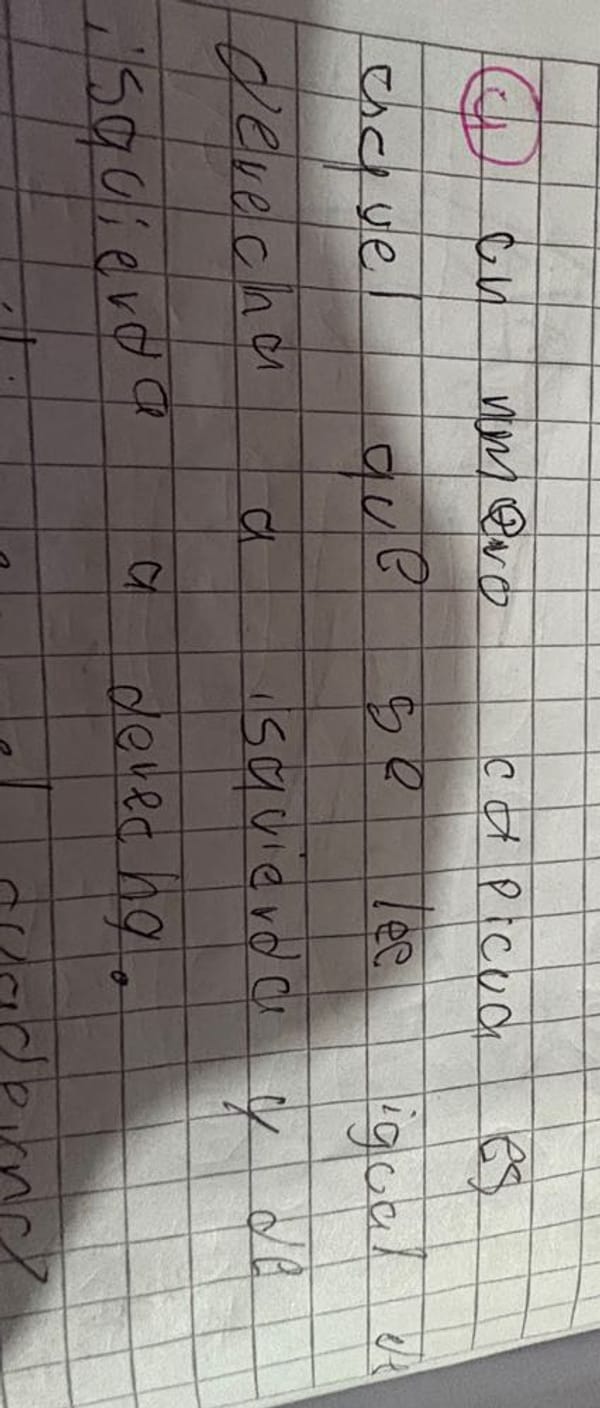 4 un nmero capicua es
aquel que se lee igual de
derecha a isquierda y de
isquierda a derecha.